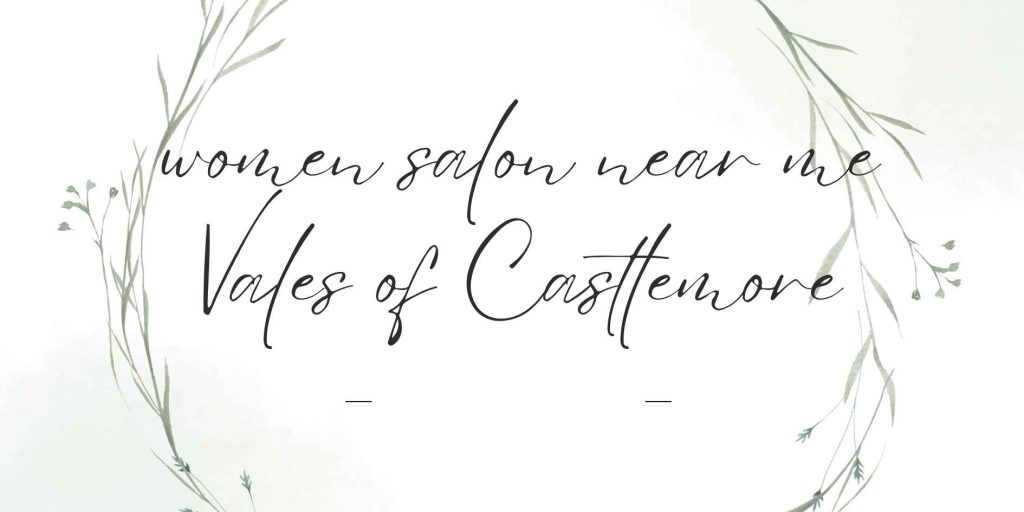 women salon near me
Vales of Castlemore